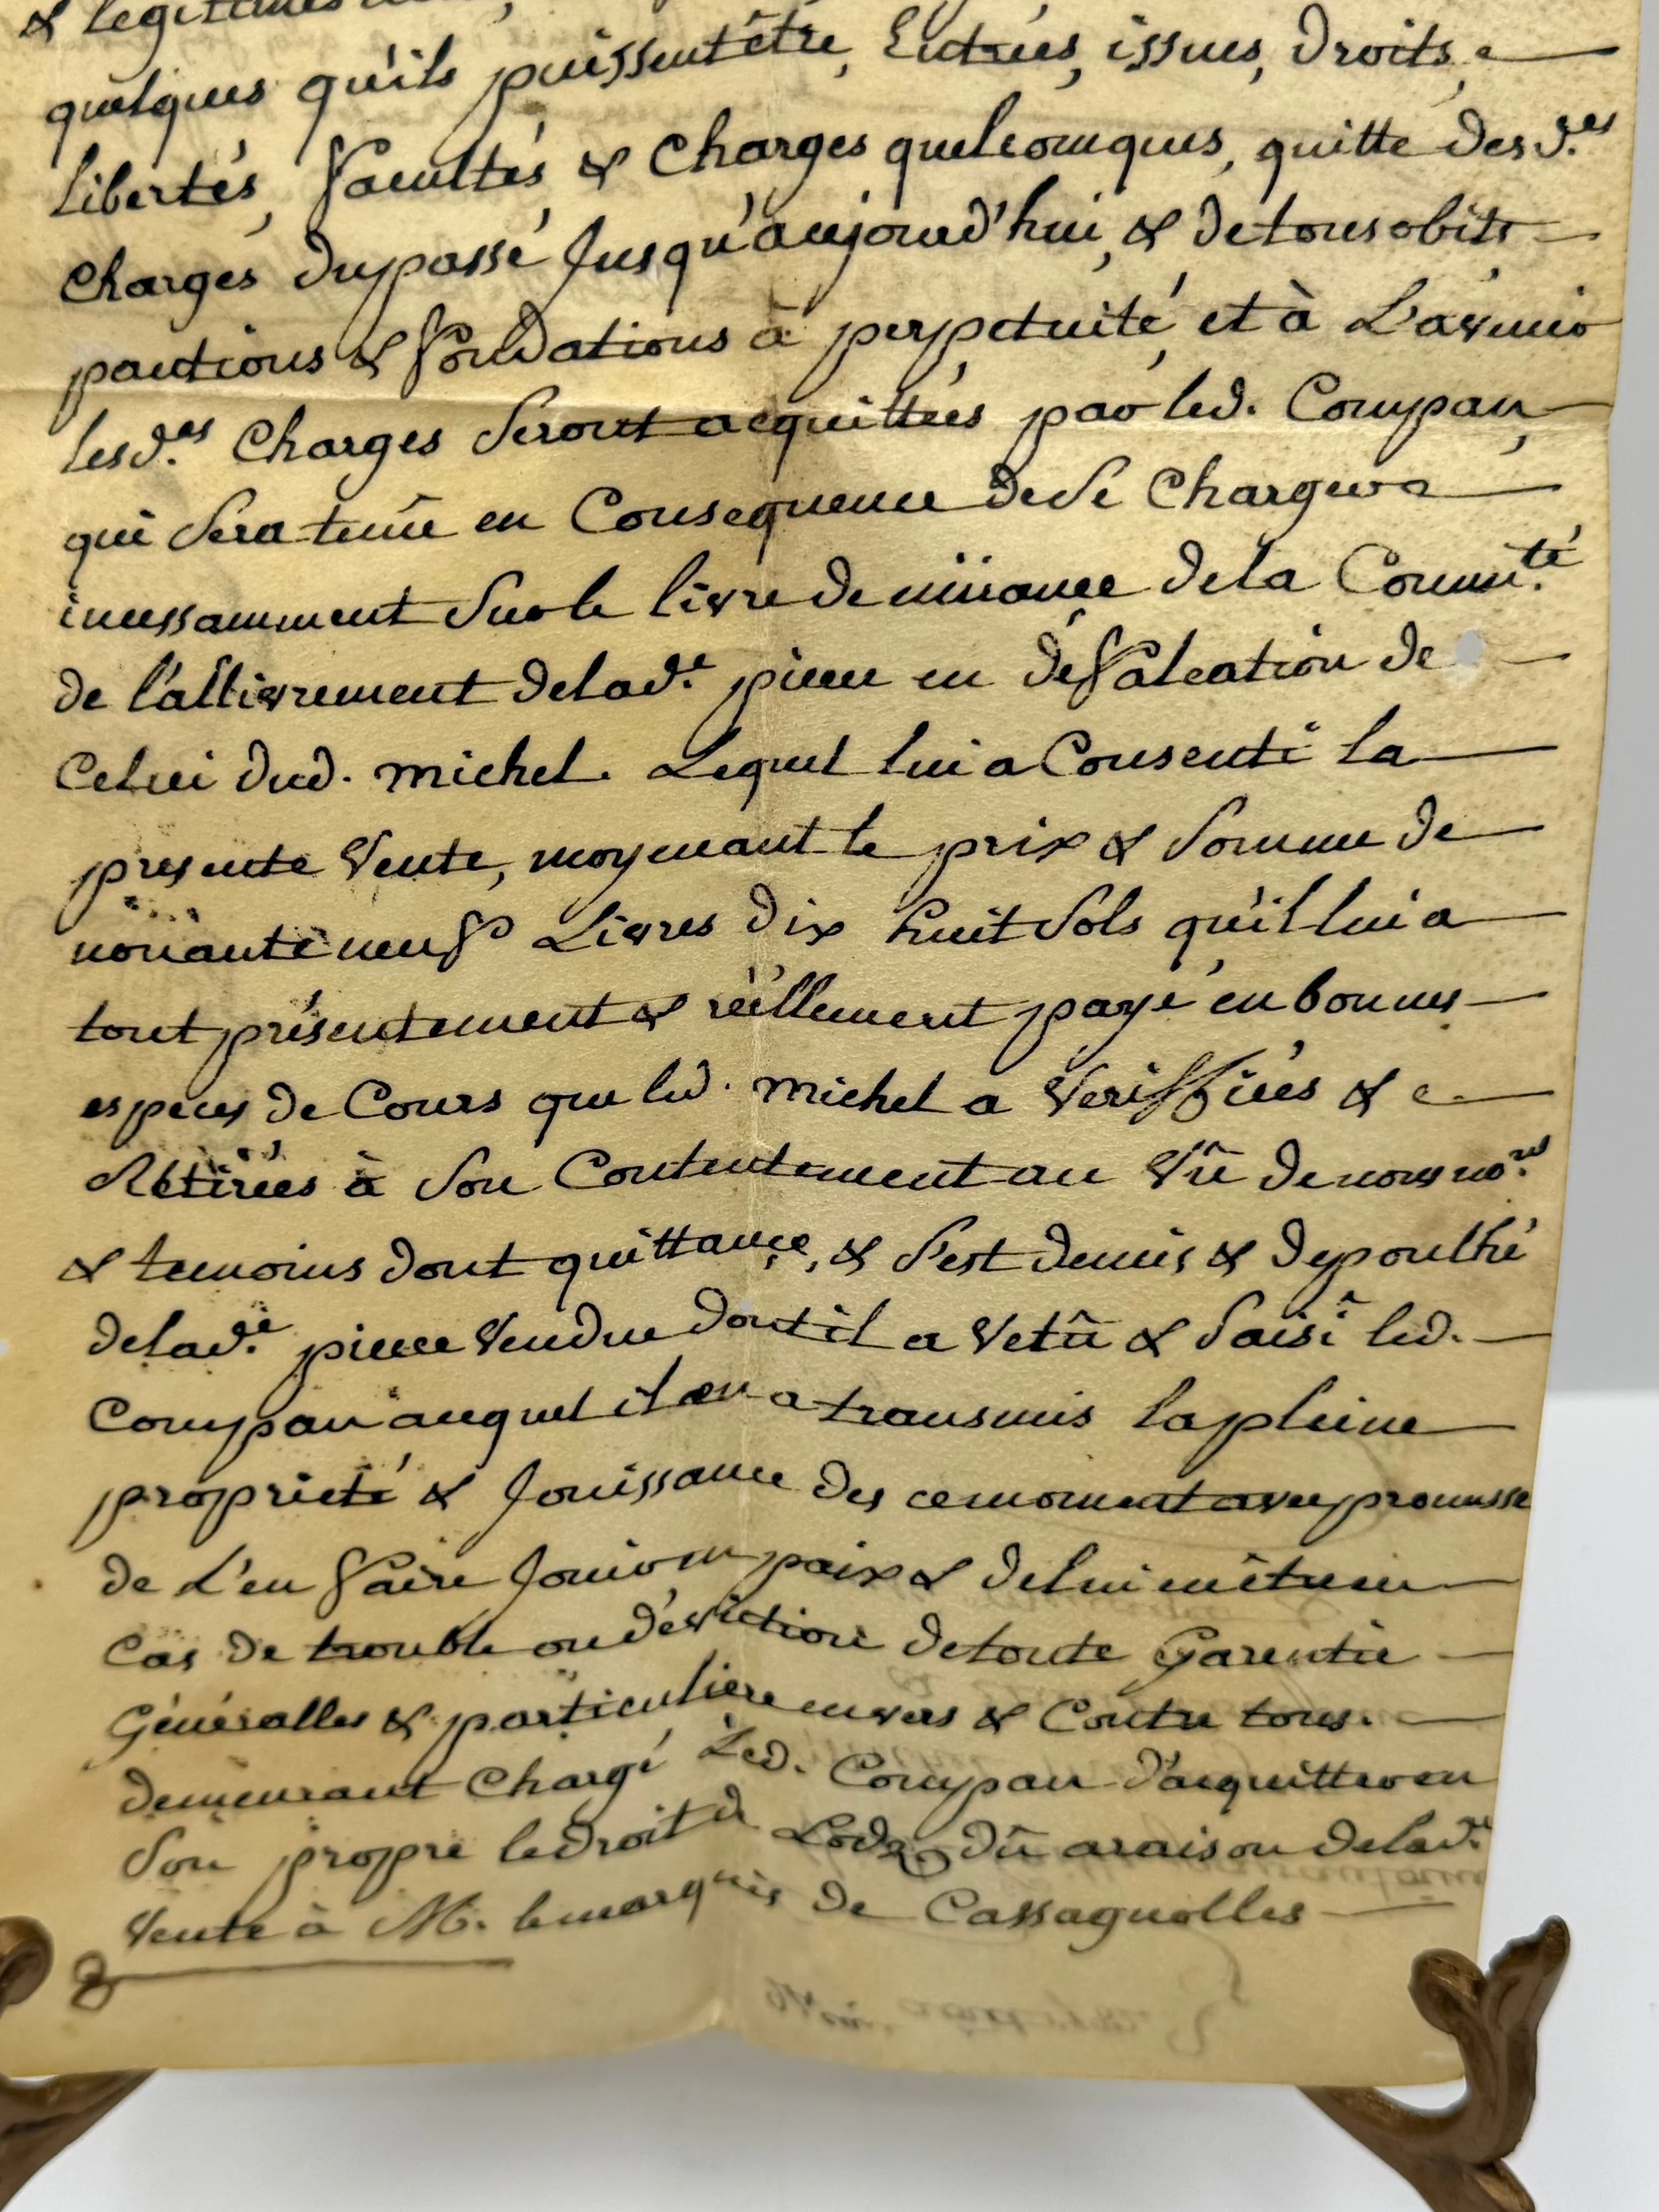 & legittimes
quelques qu'ils puissent être, Entrées, issues, Droits,
Libertés, facultés & Charges quelconques, quitte desd.es
Charges du passé Jusqu'aujourd'hui, & de tous obits
pactions & fondations à perpetuité, et à L'avenir
lesd.es Charges Seront acquittées par led. Compan,
qui Sera tenû en Consequence de Se Charger
incessamment Sur le livre de muance de la Commu.té
de l'allivrement de lad.e piece en défalcation de
Celui dud. michel. Lequel lui a Consenti la
presente Vente, moyenant le prix & Somme de
nonante neuf Livres dix huit Sols qu'il lui a
tout présentement & réellement payé en bonnes
especes de Cours que led. michel a Veriffiées &
Retirées à Son Contentement au Vû de nous no.re
& temoins dont quittance, & S'est demis & depoulhé
de lad.e piece Vendue dont il a Vetû & Saisi led.
Compan auquel il en a transmis la pleine
proprieté & Jouissance des ce moment avec promesse
de L'en faire Jouir en paix & de lui en être en
Cas de trouble ou d'eviction de toute Garentie
Généralles & particuliere envers & Contre tous.
demeurant Chargé Led. Compan d'acquitter en
Son propre le droit de Lods dû a raison de lad.e
Vente à M. le marquis de Cassagnolles